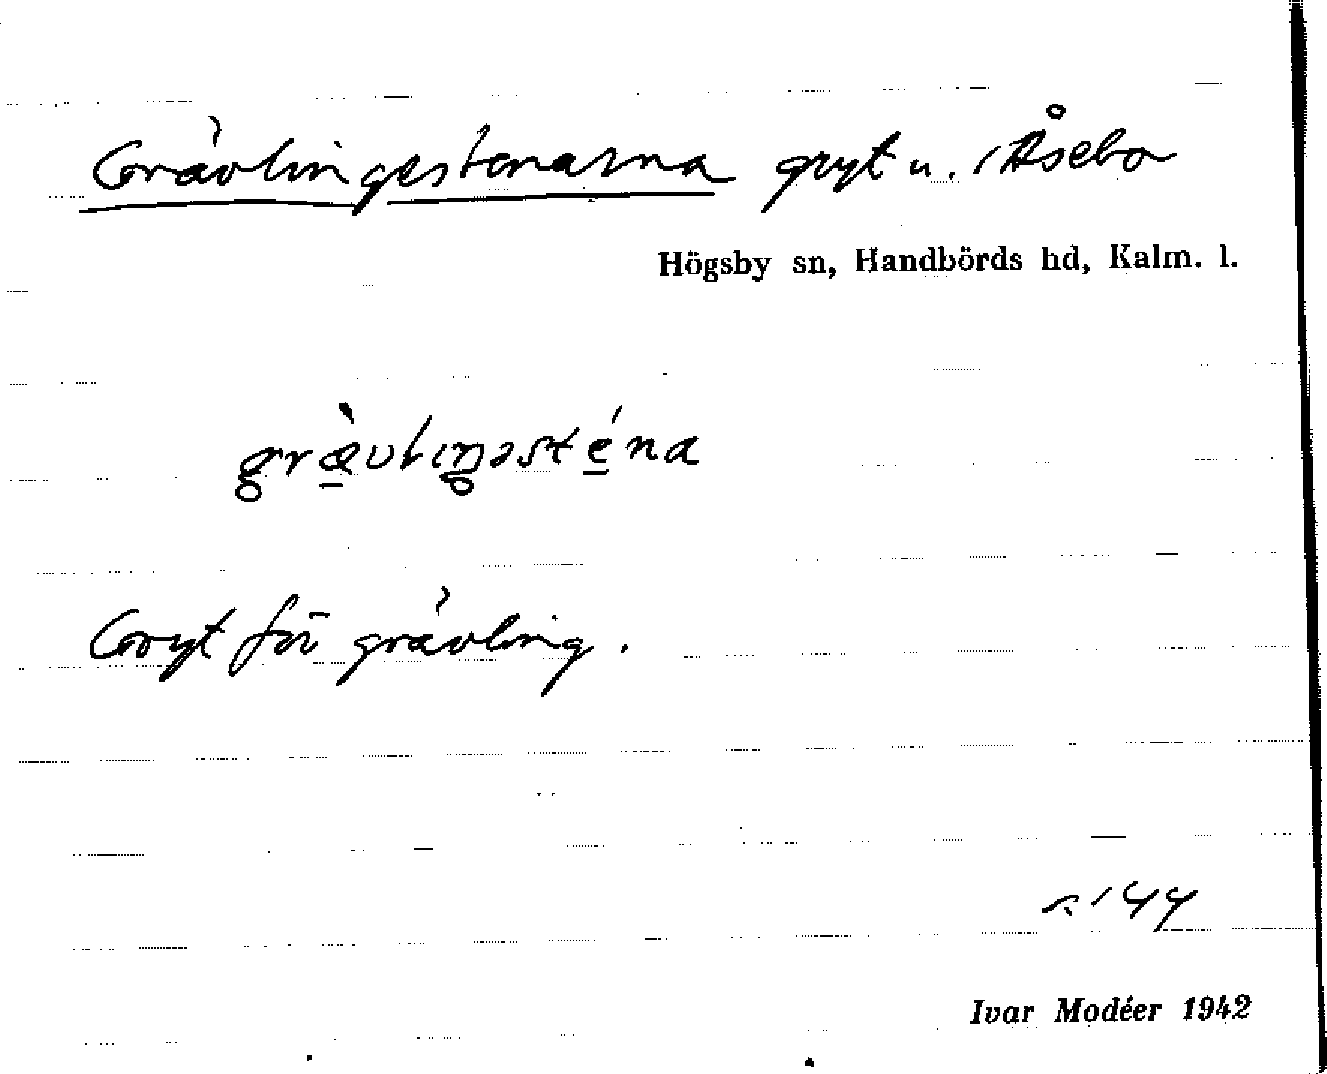 Grävlingestenarna gryt u. Åsebo
Högsby sn, Handbörds hd, Kalm. l.
grævlıŋəsténa
Gryt för grävling.
Ivar Modéer 1942